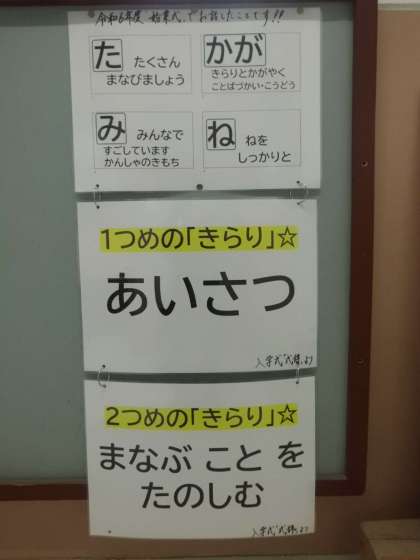 令和6年度 始業式でお話したことです!!
た たくさん
まなびましょう
かが
きらりとかがやく
ことばづかい・こうどう
み みんなで
すごしています
かんしゃのきもち
ね ねを
しっかりと
1つめの「きらり」☆
あいさつ
入学式 式辞より
2つめの「きらり」☆
まなぶ こと を
たのしむ
入学式 式辞より